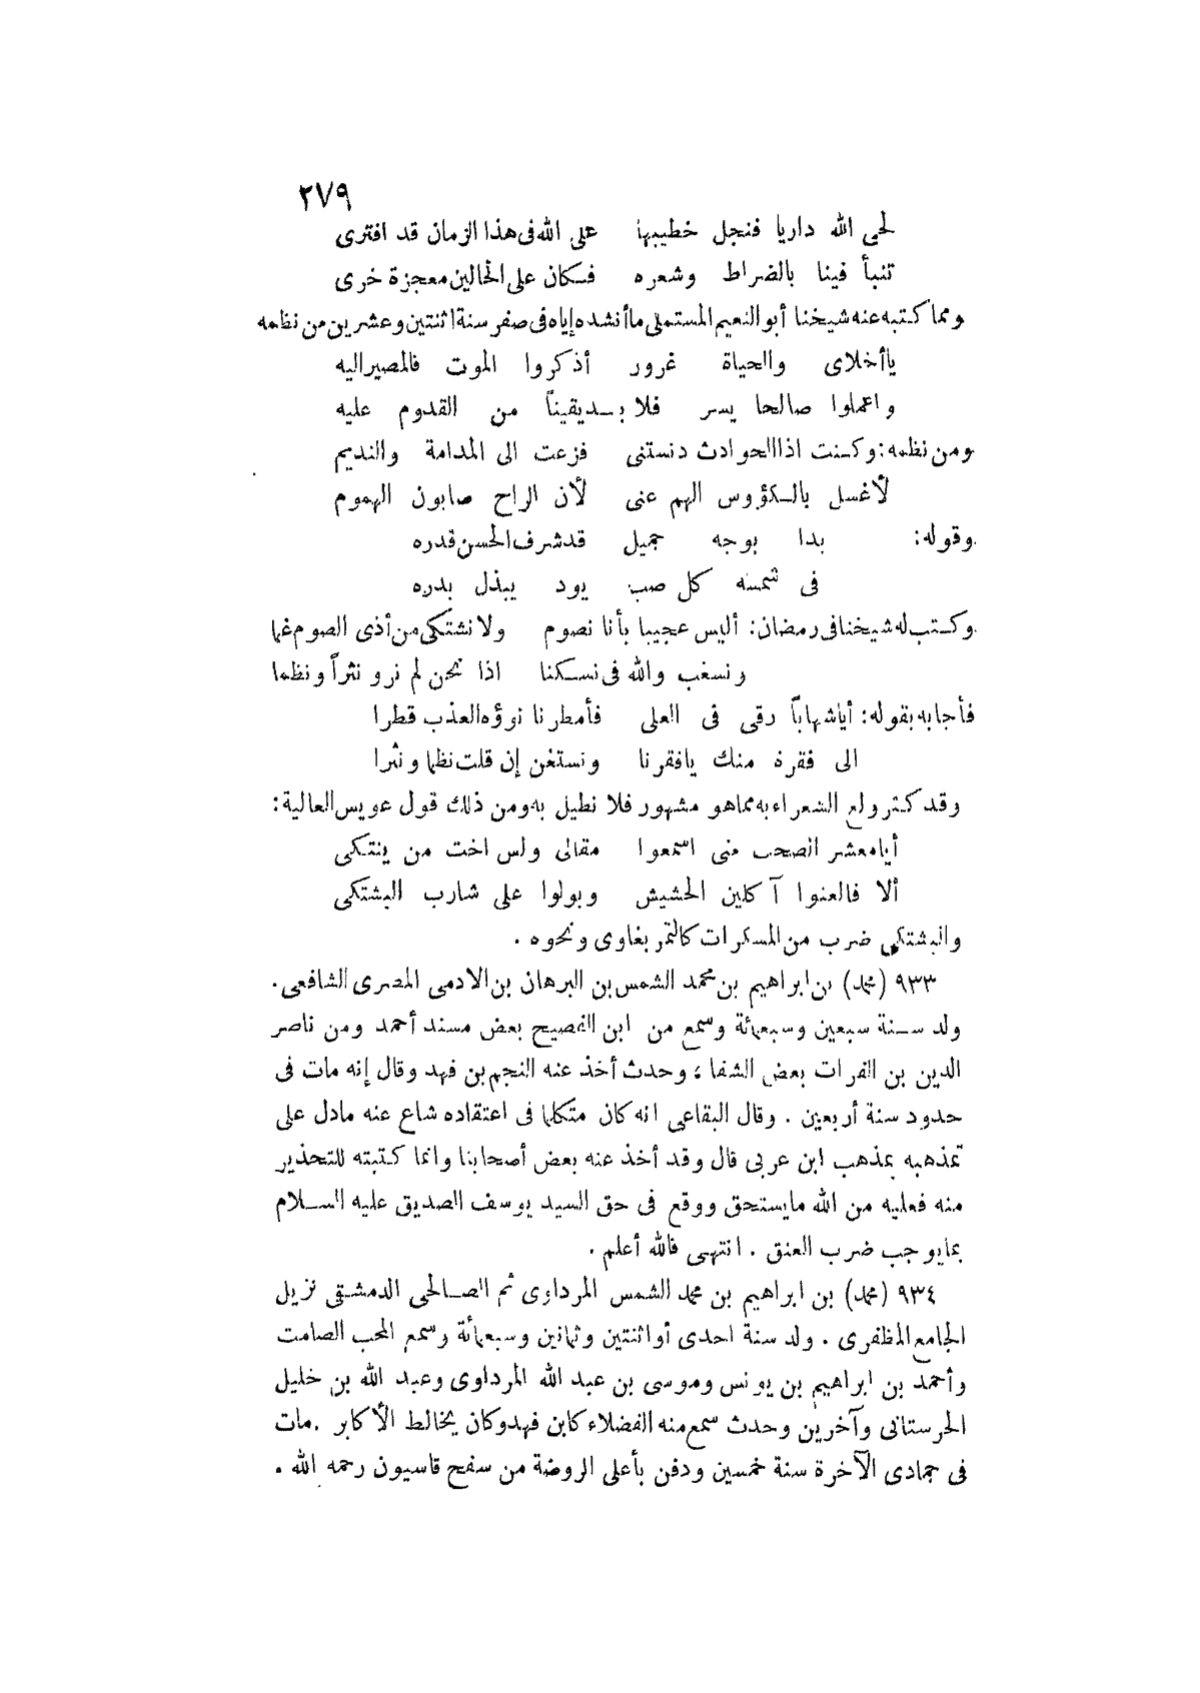 ٢٧٩
لحى الله داريا فنجل خطيبها على الله فى هذا الزمان قد افترى
تنبأ فينا بالضراط وشعره فكان على الحالين معجزة خرى
ومما كتبه عنه شيخنا أبو النعيم المستملى ما أنشده إياه فى صفر سنة اثنتين وعشرين من نظمه
يا أخلاى والحياة غرور أذكروا الموت فالمصير اليه
واعملوا صالحا يسر فلا بد يقيناً من القدوم عليه
ومن نظمه: وكنت اذا الحوادث دنستنى فزعت الى المدامة والنديم
لأغسل بالكؤوس الهم عنى لأن الراح صابون الهموم
وقوله: بدا بوجه جميل قد شرف الحسن قدره
فى شمسه كل صب يود يبذل بدره
وكتب له شيخنا فى رمضان: أليس عجيبا بأنا نصوم ولا نشتكى من أذى الصوم غما
ونسغب والله فى نسكنا اذا نحن لم نرو نثراً ونظما
فأجابه بقوله: أيا شهاباً رقى فى العلى فأمطرنا نوؤه العذب قطرا
الى فقرة منك يا فقرنا ونستغن إن قلت نظما ونثرا
وقد كثر ولع الشعراء به مما هو مشهور فلا نطيل به ومن ذلك قول عويس العالية:
أيا معشر الصحب منى اسمعوا مقالى ولس اخت من ينتكى
ألا فالعنوا آكلين الحشيش وبولوا على شارب البشتكى
والبشتكى ضرب من المسكرات كالتمر بغاوى ونحوه .
٩٣٣ (محمد) بن ابراهيم بن محمد الشمس بن البرهان بن الادمى المصرى الشافعى.
ولد سنة سبعين وسبعمائة وسمع من ابن الفصيح بعض مسند أحمد ومن ناصر
الدين بن الفرات بعض الشفا ؛ وحدث أخذ عنه النجم بن فهد وقال إنه مات فى
حدود سنة أربعين . وقال البقاعى انه كان متكلما فى اعتقاده شاع عنه مادل على
تمذهبه بمذهب ابن عربى قال وقد أخذ عنه بعض أصحابنا وانما كتبته للتحذير
منه فعليه من الله ما يستحق ووقع فى حق السيد يوسف الصديق عليه السلام
بما يوجب ضرب العنق . انتهى فالله أعلم .
٩٣٤ (محمد) بن ابراهيم بن محمد الشمس المرداوى ثم الصالحى الدمشقى نزيل
الجامع المظفرى . ولد سنة احدى أو اثنتين وثمانين وسبعمائة وسمع المحب الصامت
وأحمد بن ابراهيم بن يونس وموسى بن عبد الله المرداوى وعبد الله بن خليل
الحرستانى وآخرين وحدث سمع منه الفضلاء كابن فهد وكان يخالط الأكابر . مات
فى جمادى الآخرة سنة خمسين ودفن بأعلى الروضة من سفح قاسيون رحمه الله .